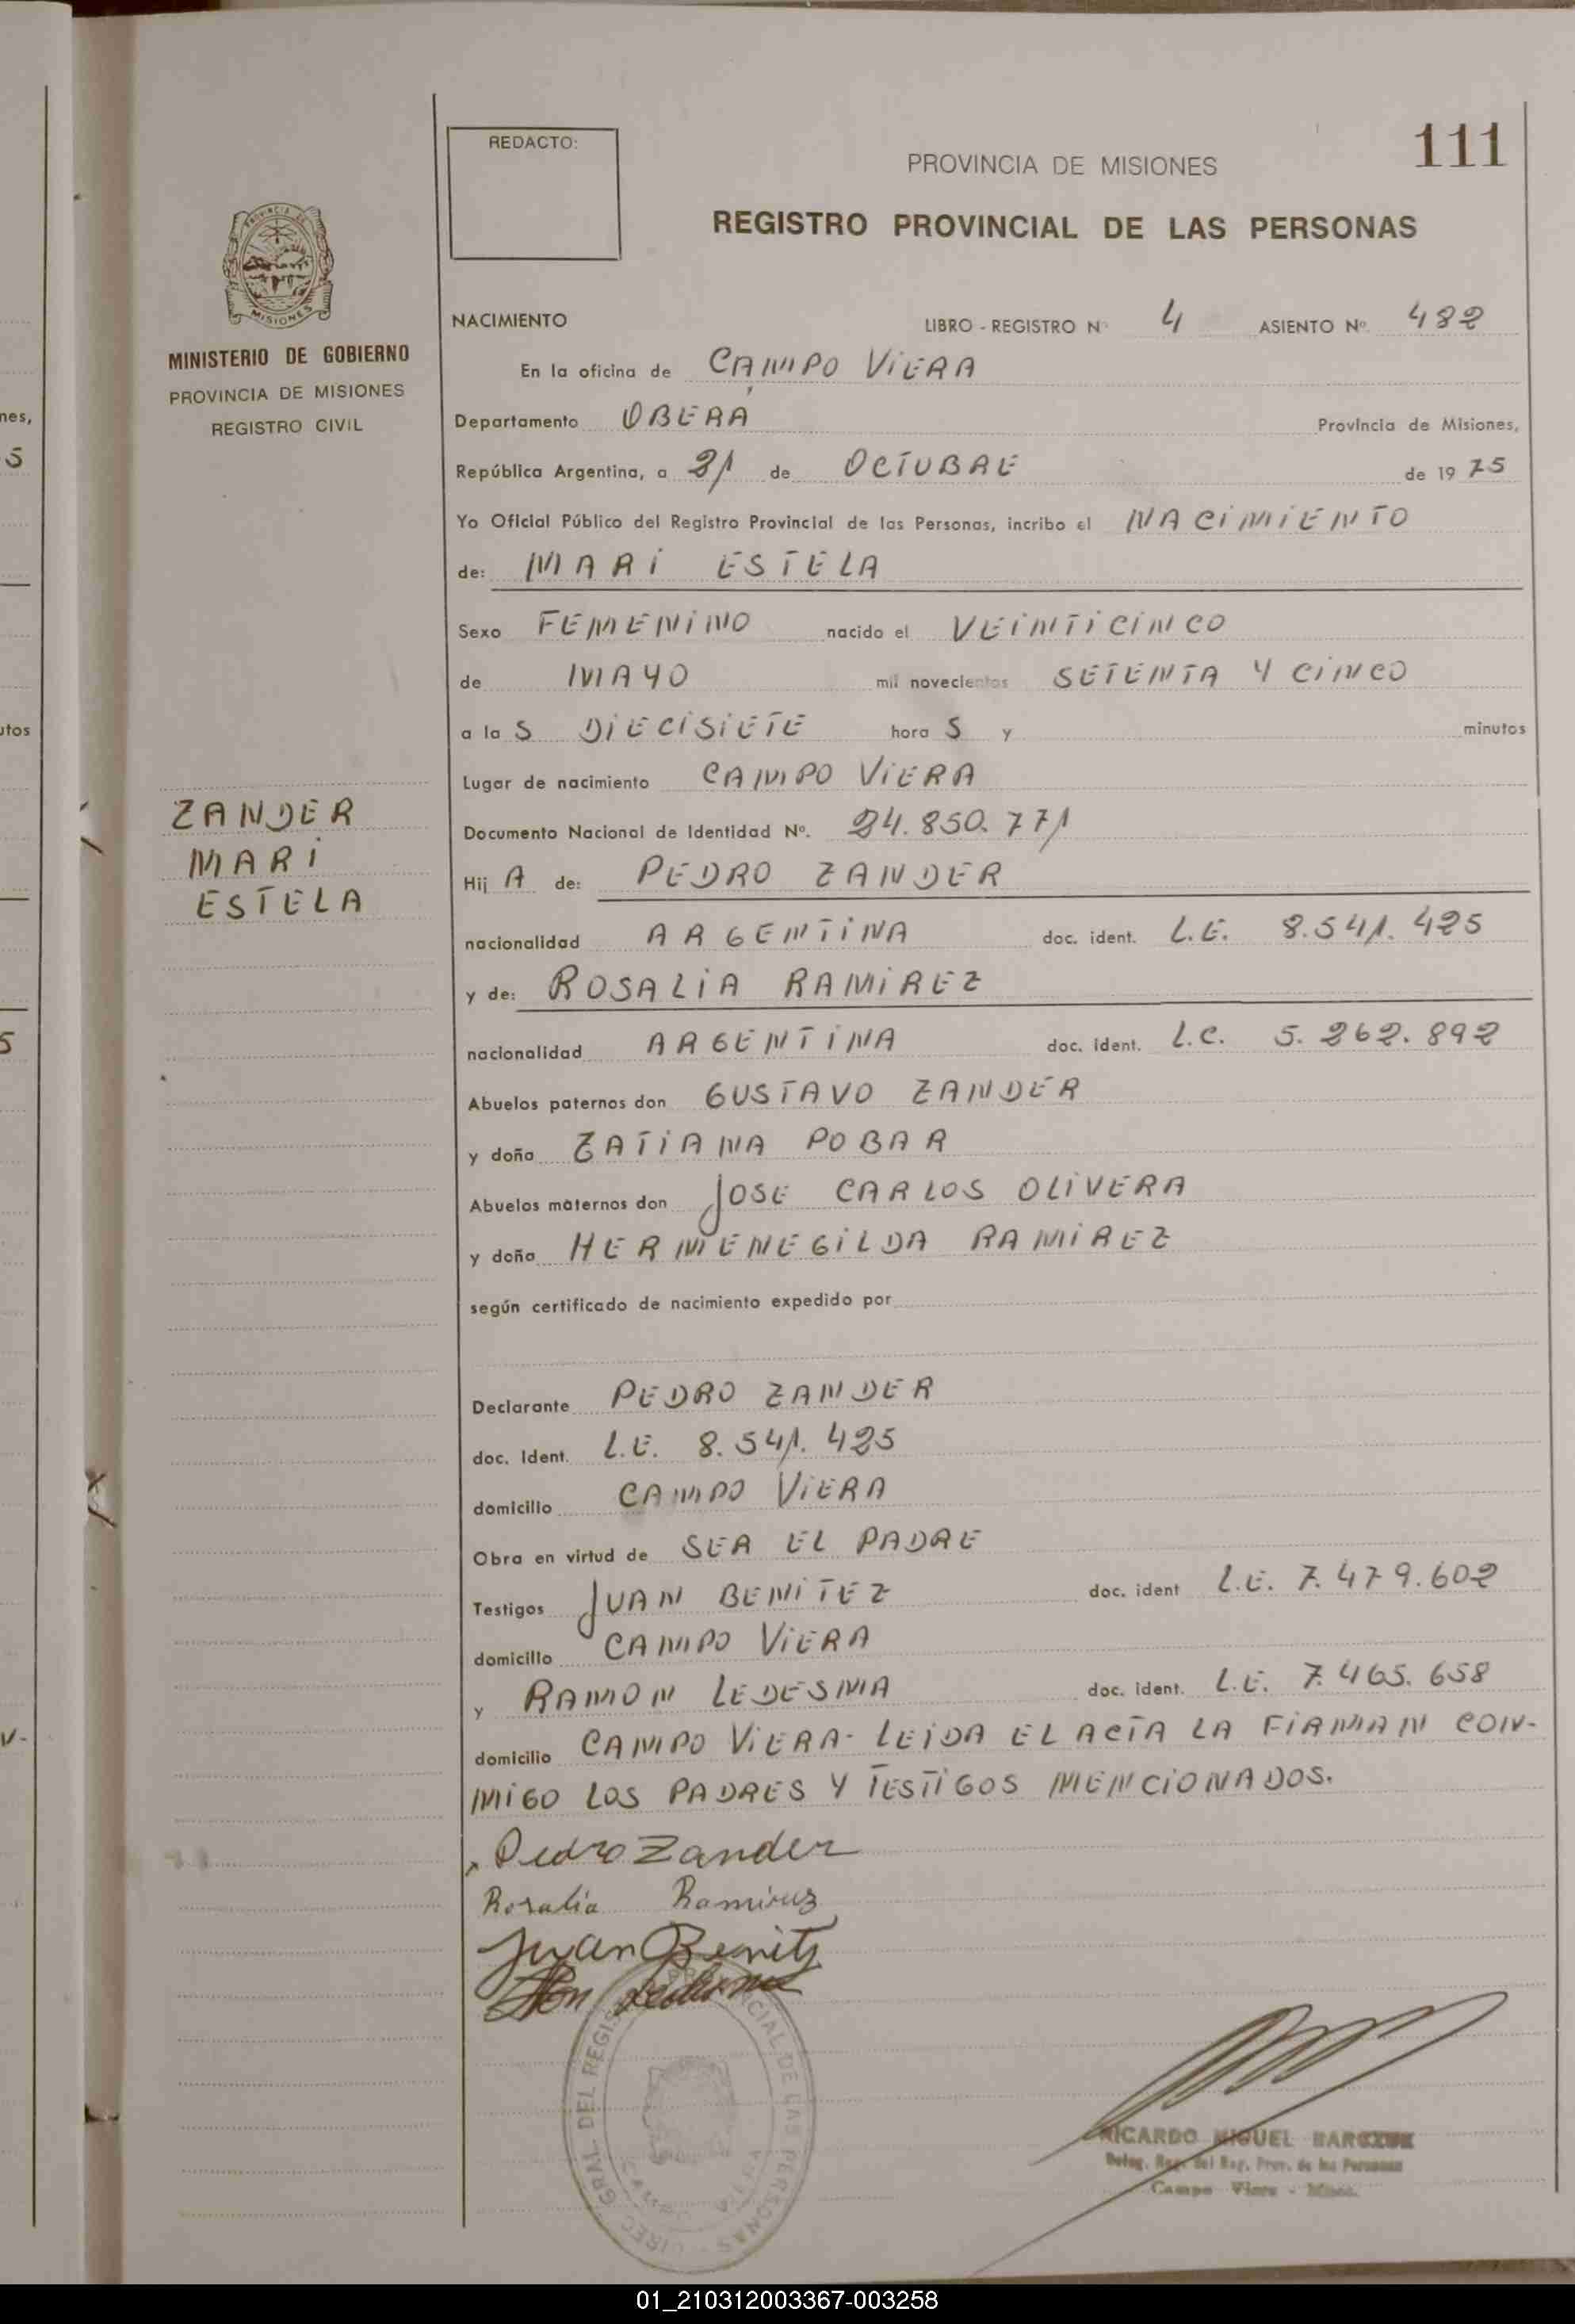 111
REDACTO:
PROVINCIA DE MISIONES
REGISTRO PROVINCIAL DE LAS PERSONAS
PROVINCIA DE
MISIONES
MINISTERIO DE GOBIERNO
PROVINCIA DE MISIONES
REGISTRO CIVIL
NACIMIENTO LIBRO - REGISTRO Nº 4 ASIENTO Nº 482
En la oficina de CAMPO VIERA
Departamento OBERÁ Provincia de Misiones,
República Argentina, a 21 de OCTUBRE de 1975
Yo Oficial Público del Registro Provincial de las Personas, incribo el NACIMIENTO
de: MARI ESTELA
Sexo FEMENINO nacido el VEINTICINCO
de MAYO mil novecientos SETENTA Y CINCO
a la S DIECISIETE hora S y minutos
Lugar de nacimiento CAMPO VIERA
ZANDER
MARI
ESTELA
Documento Nacional de Identidad Nº. 24.850.771
Hij A de: PEDRO ZANDER
nacionalidad ARGENTINA doc. ident. L.E. 8.541.425
y de: ROSALIA RAMIREZ
nacionalidad ARGENTINA doc. ident. L.C. 5.262.892
Abuelos paternos don GUSTAVO ZANDER
y doña ZATIANA POBAR
Abuelos maternos don JOSE CARLOS OLIVERA
y doña HERMENEGILDA RAMIREZ
según certificado de nacimiento expedido por
Declarante PEDRO ZANDER
doc. Ident. L.E. 8.541.425
domicilio CAMPO VIERA
Obra en virtud de SER EL PADRE
Testigos JUAN BENITEZ doc. ident L.E. 7.479.602
domicilio CAMPO VIERA
y RAMON LEDESMA doc. ident. L.E. 7.465.658
domicilio CAMPO VIERA- LEIDA EL ACTA LA FIRMAN CON-
MIGO LOS PADRES Y TESTIGOS MENCIONADOS.
Pedro Zander
Rosalia Ramirez
Juan Benitz
DIREC. GRAL. DEL REGISTRO PROVINCIAL DE LAS PERSONAS
CAMPO VIERA
RICARDO MIGUEL
Deleg. Reg. del Reg. Prov. de las Personas
Campo Viera - Mnes.
nes,
5
utos
5
V-
01_210312003367-003258